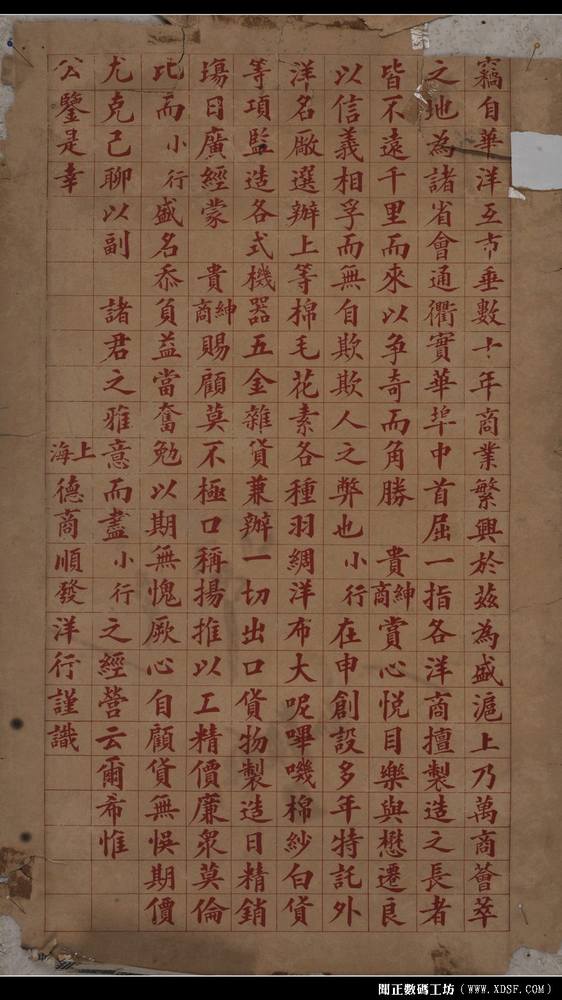 竊自華洋互市垂數十年商業繁興於茲為盛滬上乃萬商薈萃
之地為諸省會通衢實華埠中首屈一指各洋商擅製造之長者
皆不遠千里而來以争奇而角勝 貴紳商賞心悦目樂與懋遷良
以信義相孚而無自欺欺人之弊也小行在申創設多年特託外
洋名厰選辦上等棉毛花素各種羽綢洋布大呢嗶嘰棉紗白貨
等項監造各式機器五金雜貨兼辦一切出口貨物製造日精銷
塲日廣經蒙 貴紳商賜顧莫不極口稱揚推以工精價廉衆莫倫
比而小行盛名忝負益當奮勉以期無愧厥心自顧貨無悞期價
尤克己聊以副 諸君之雅意而盡小行之經營云爾希惟
公鑒是幸 上海德商順發洋行謹識
聞正數碼工坊（WWW.XDSF.COM）